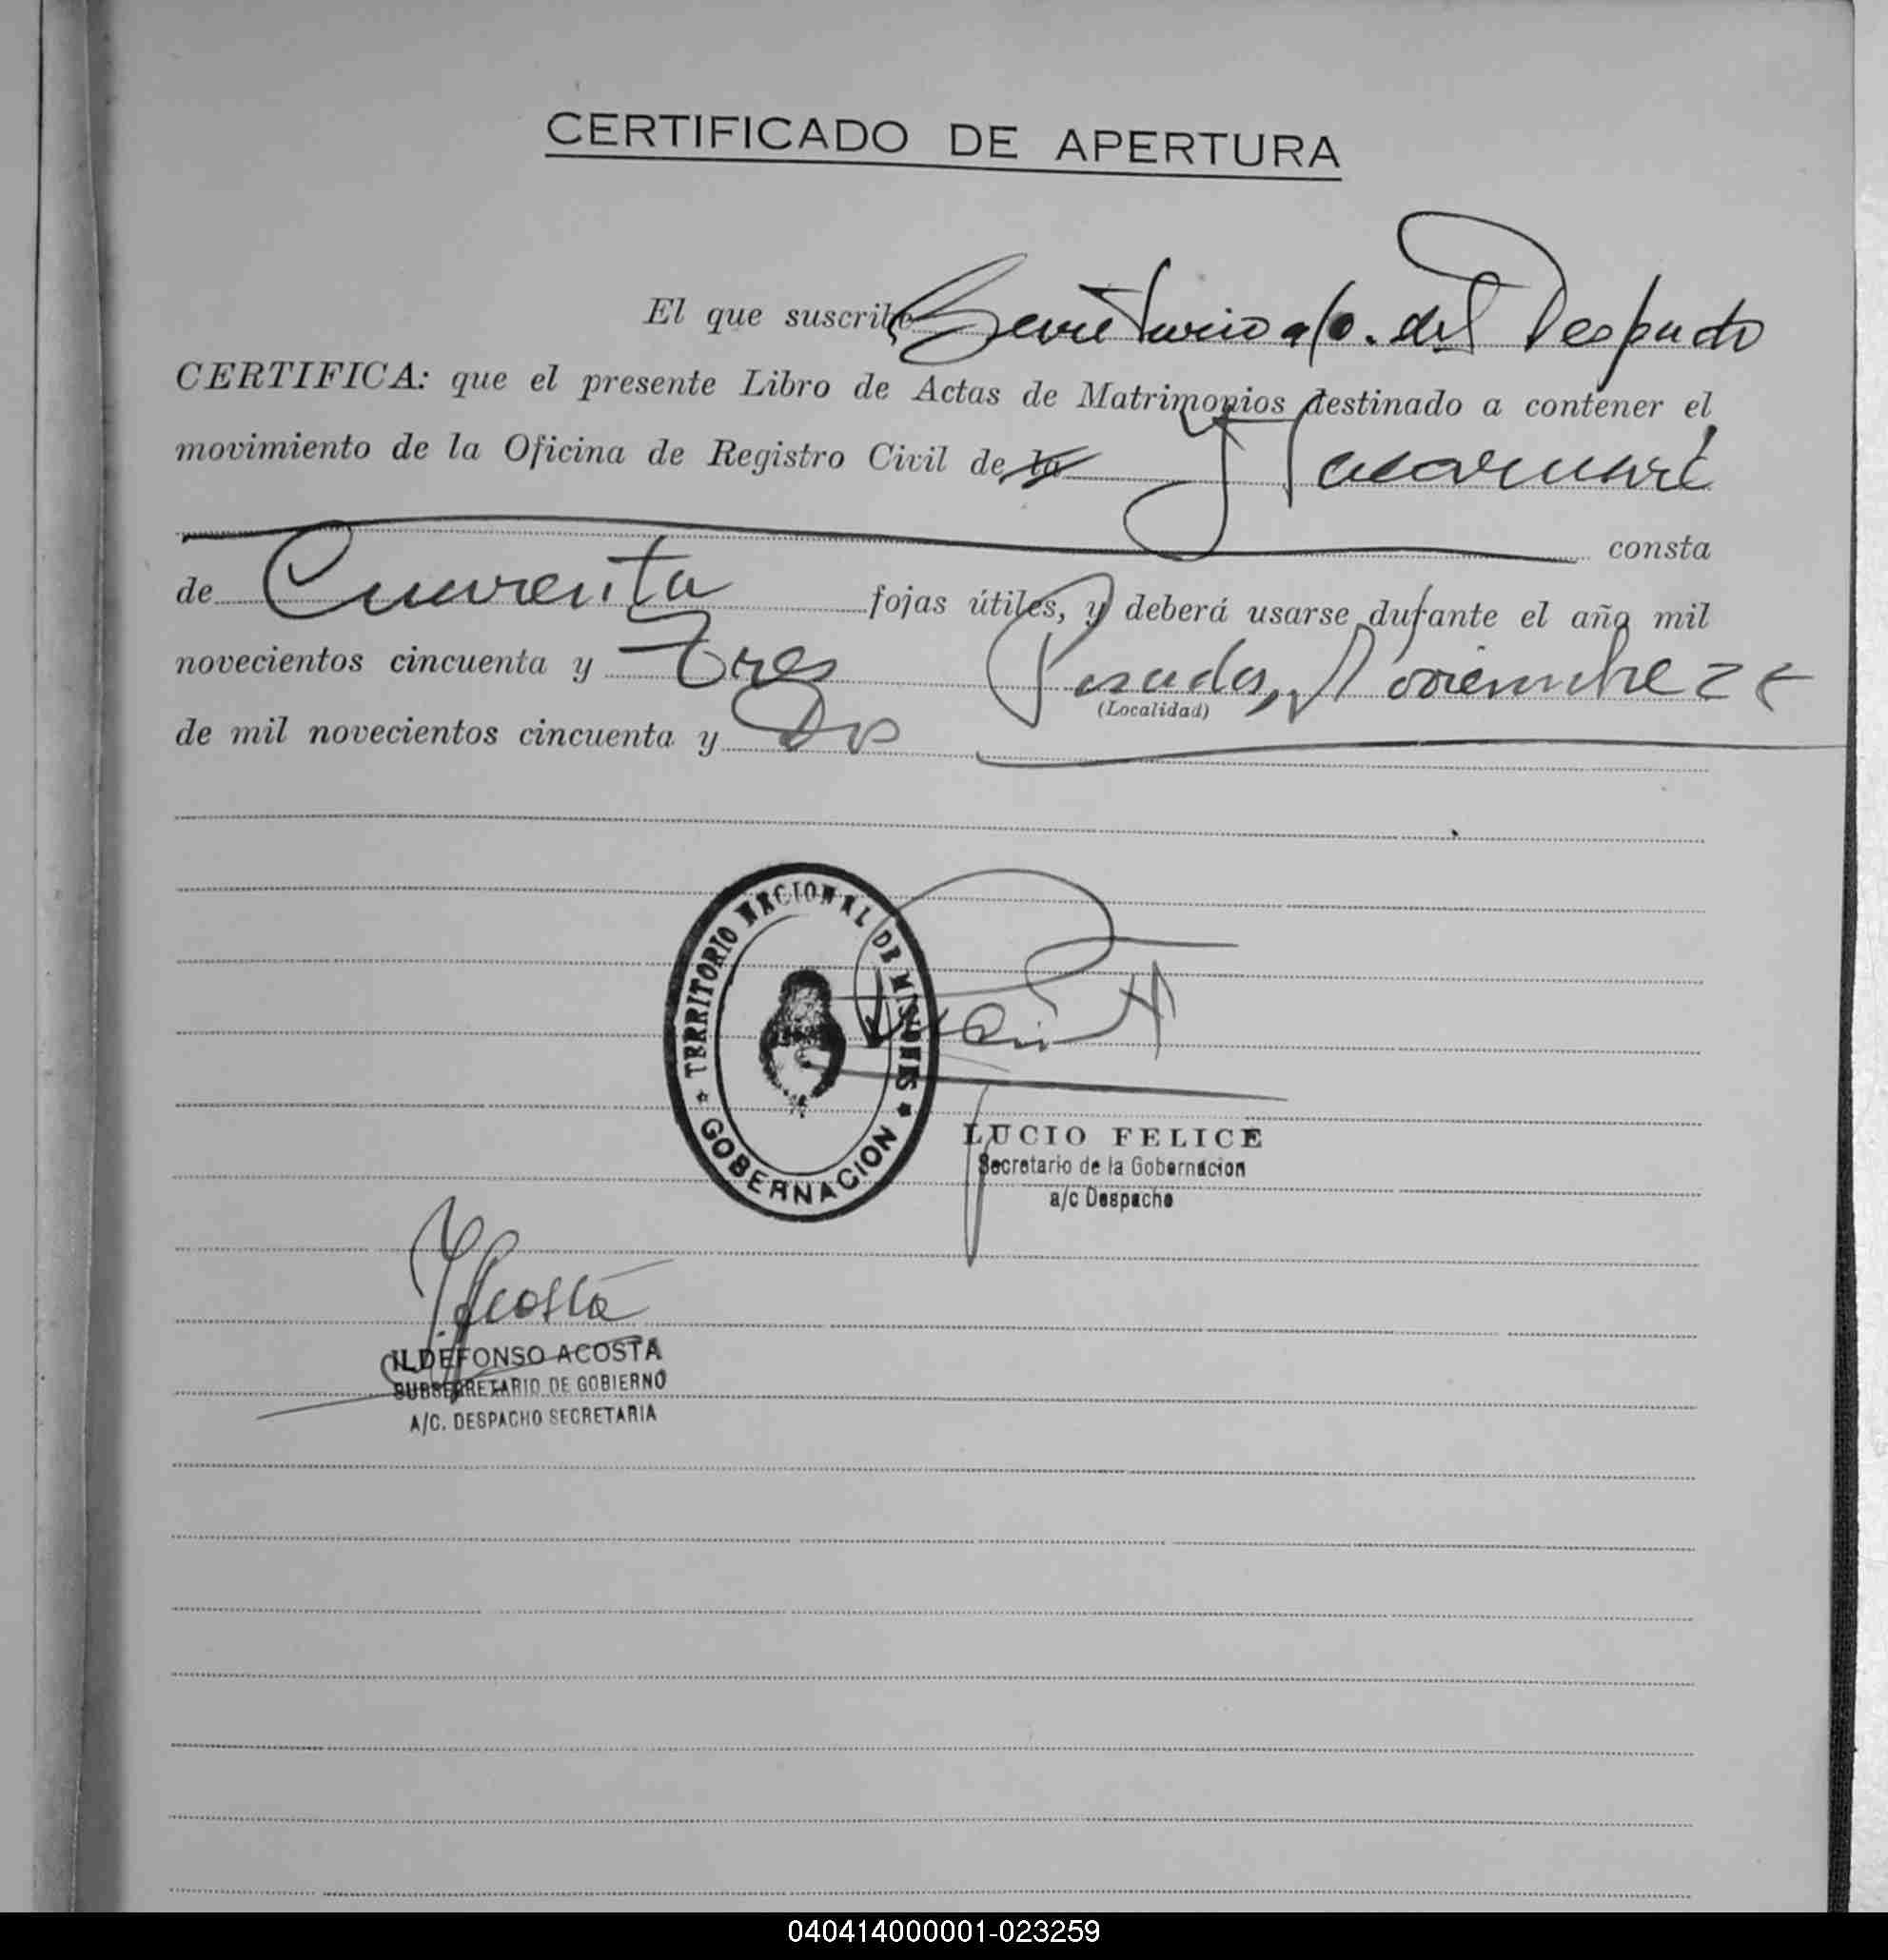 CERTIFICADO DE APERTURA
El que suscribe Secretario a/c. del Despacho
CERTIFICA: que el presente Libro de Actas de Matrimonios destinado a contener el
movimiento de la Oficina de Registro Civil de la
consta
de Cuarenta fojas útiles, y deberá usarse durante el año mil
novecientos cincuenta y tres Posadas, Noviembre
(Localidad)
de mil novecientos cincuenta y Dos
TERRITORIO NACIONAL DE MISIONES
GOBERNACION
LUCIO FELICE
Secretario de la Gobernacion
a/c Despacho
I. Acosta
ILDEFONSO ACOSTA
SUBSECRETARIO DE GOBIERNO
A/C. DESPACHO SECRETARIA
040414000001-023259